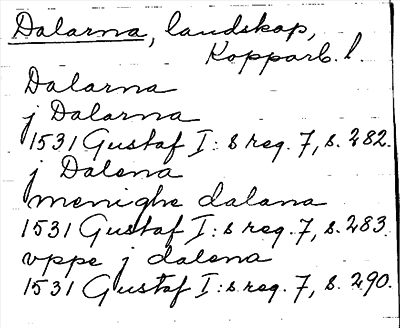 Dalarna, landskap,
Kopparb. l.
Dalarna
j Dalarna
1531 Gustaf I:s reg. 7, s. 282.
j Dalena
menighe dalana
1531 Gustaf I:s reg. 7, s. 283.
vppe j dalena
1531 Gustaf I:s reg. 7, s. 290.